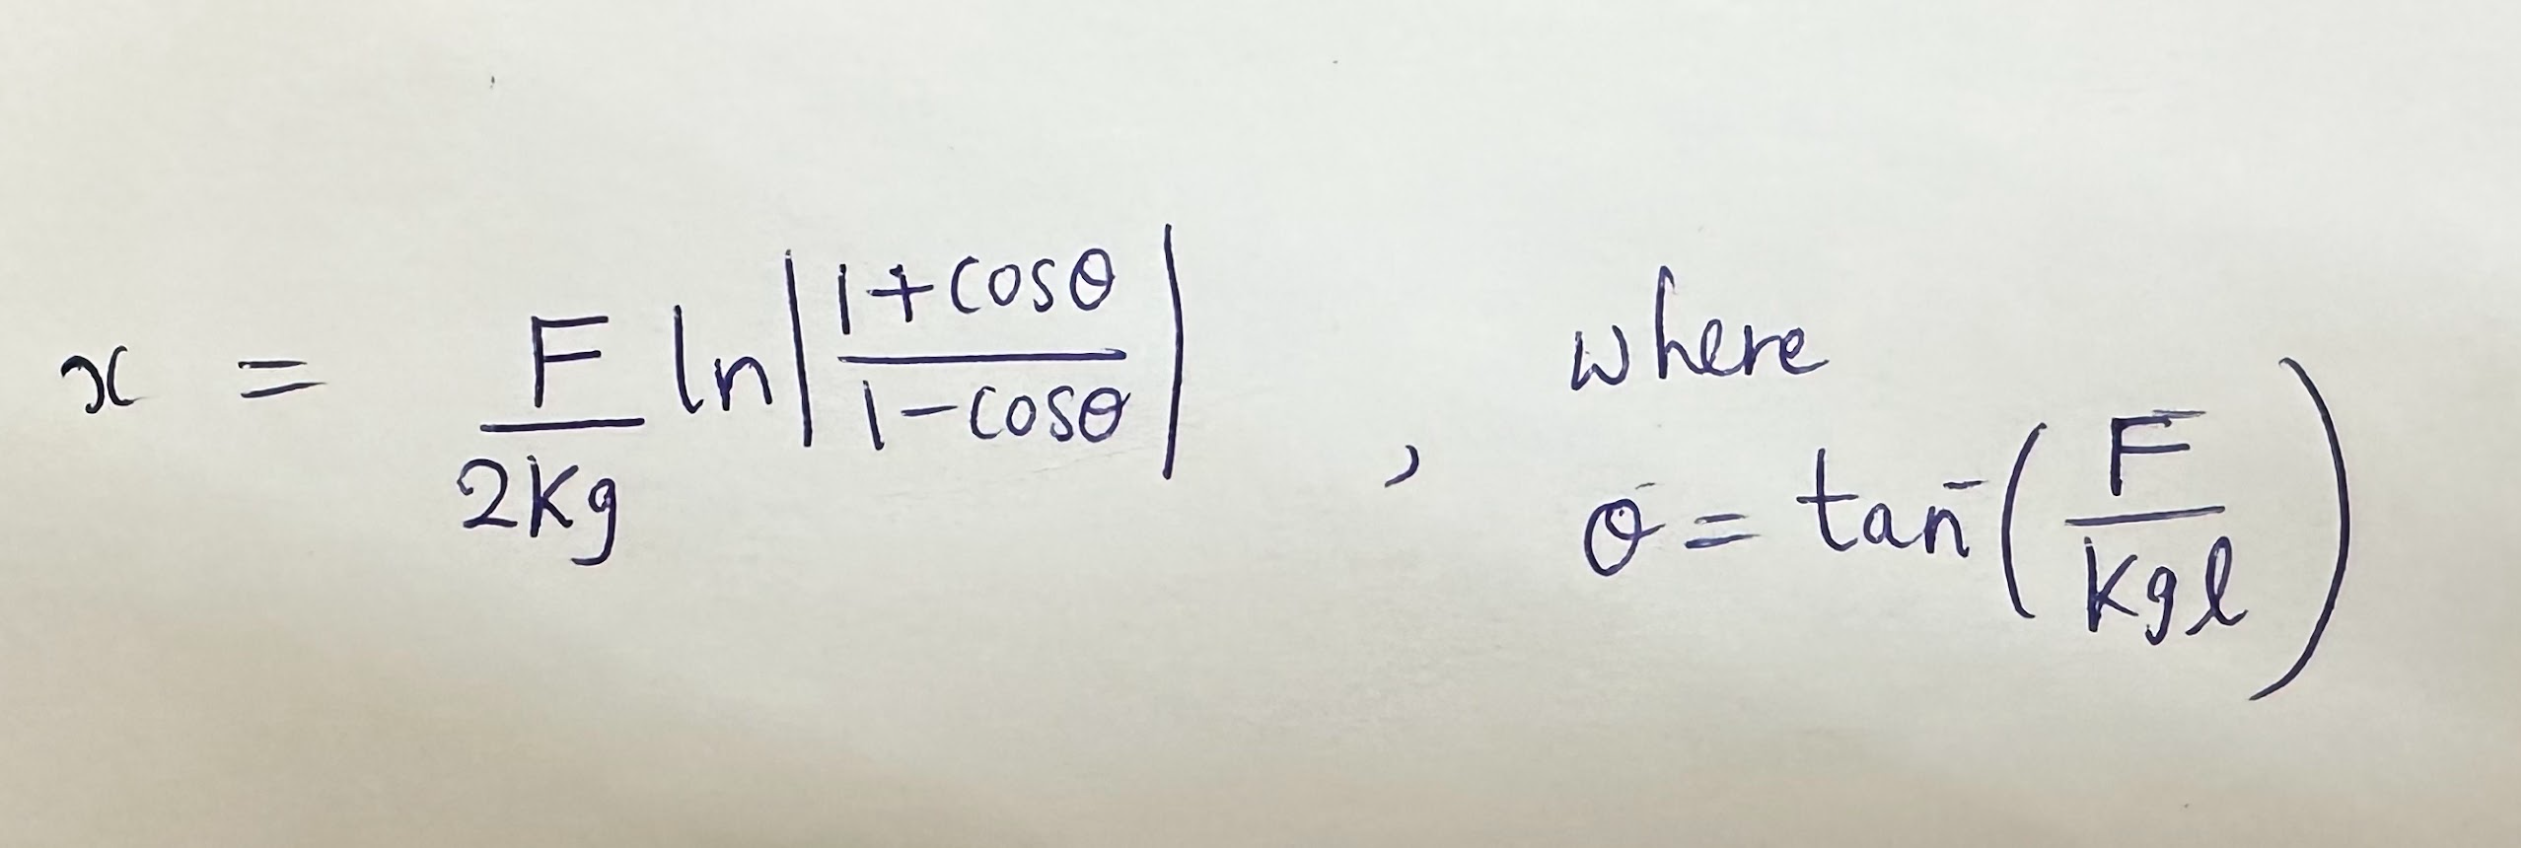 x = F/2Kg ln|1+cosθ/1-cosθ| , where
θ = tan⁻(F/Kgl)